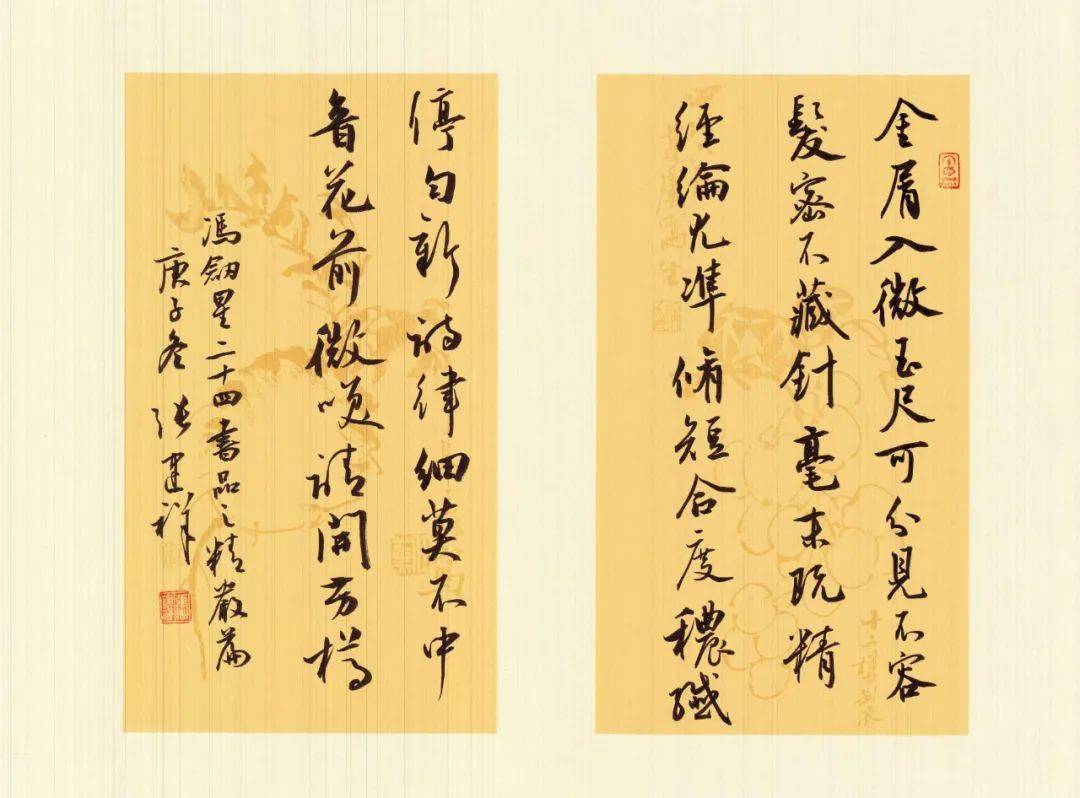 金屑入微玉尺可分見不容
髮密不藏針毫末既精
經綸尤準脩短合度穠纖
停勻新詩律細莫不中
音花前微咲請開芳樽
馮劍星二十四書品之精嚴篇
庚子冬 張建祥